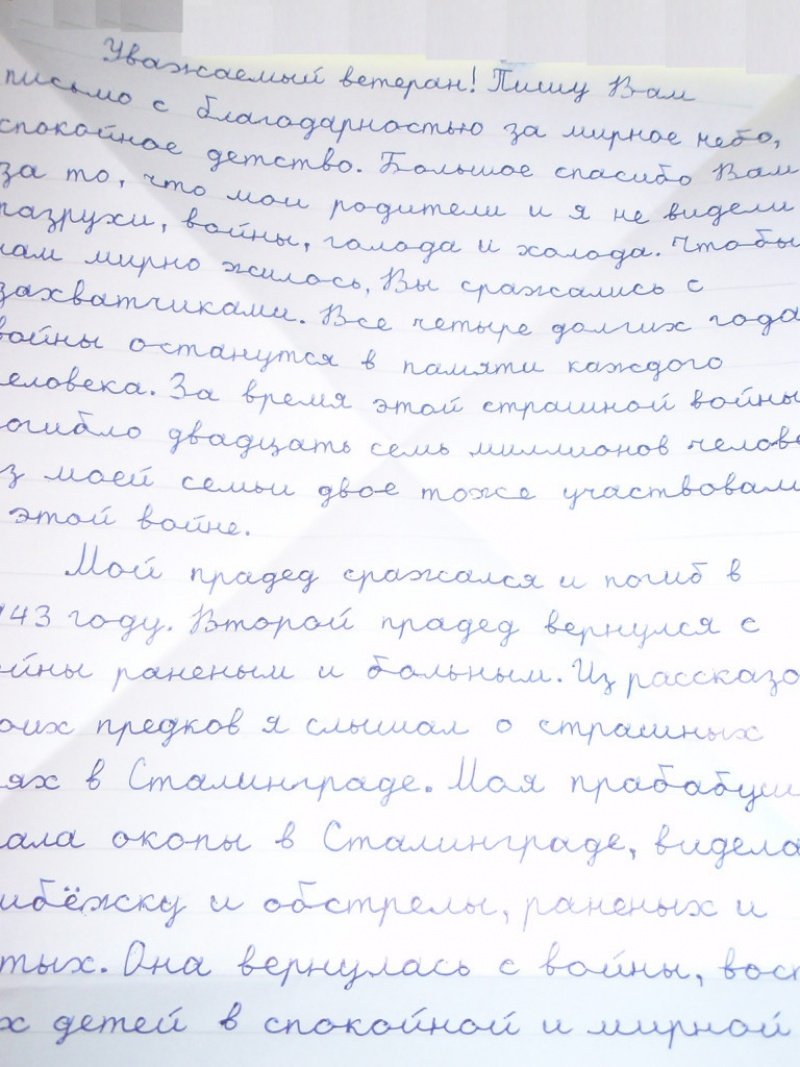 Уважаемый ветеран! Пишу Вам
письмо с благодарностью за мирное небо,
спокойное детство. Большое спасибо Вам
за то, что мои родители и я не видели
разрухи, войны, голода и холода. Чтобы
нам мирно жилось, Вы сражались с
захватчиками. Все четыре долгих года
войны останутся в памяти каждого
человека. За время этой страшной войны
огибло двадцать семь миллионов челове
з моей семьи двое тоже участвовали
этой войне.
Мой прадед сражался и погиб в
43 году. Второй прадед вернулся с
йны раненым и больным. Из рассказо
оих предков я слышал о страшных
ях в Сталинграде. Моя прабабуш
ала окопы в Сталинграде, видела
мбёжку и обстрелы, раненых и
тых. Она вернулась с войны, восп
х детей в спокойной и мирной